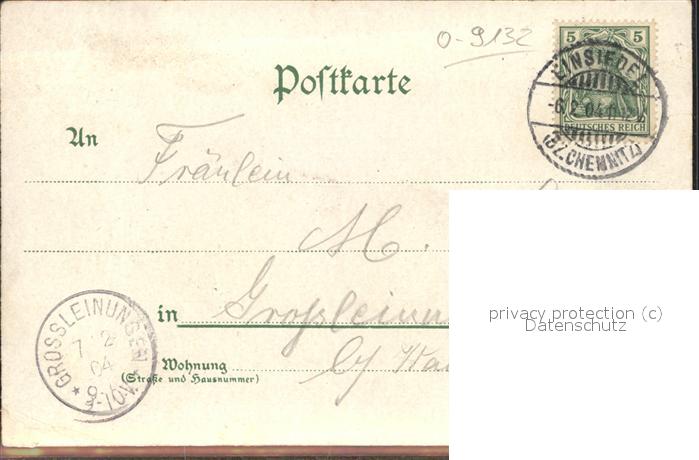 0-9132
5 5
EINSIEDEL
Postkarte
-6.2.04.
DEUTSCHES REICH
(BZ. CHEMNITZ)
An
Fräulein
M.
privacy protection (c)
Datenschutz
in
GROSSLEINUNGEN
7 2
04
9-10V.
Wohnung
(Straße und Hausnummer)